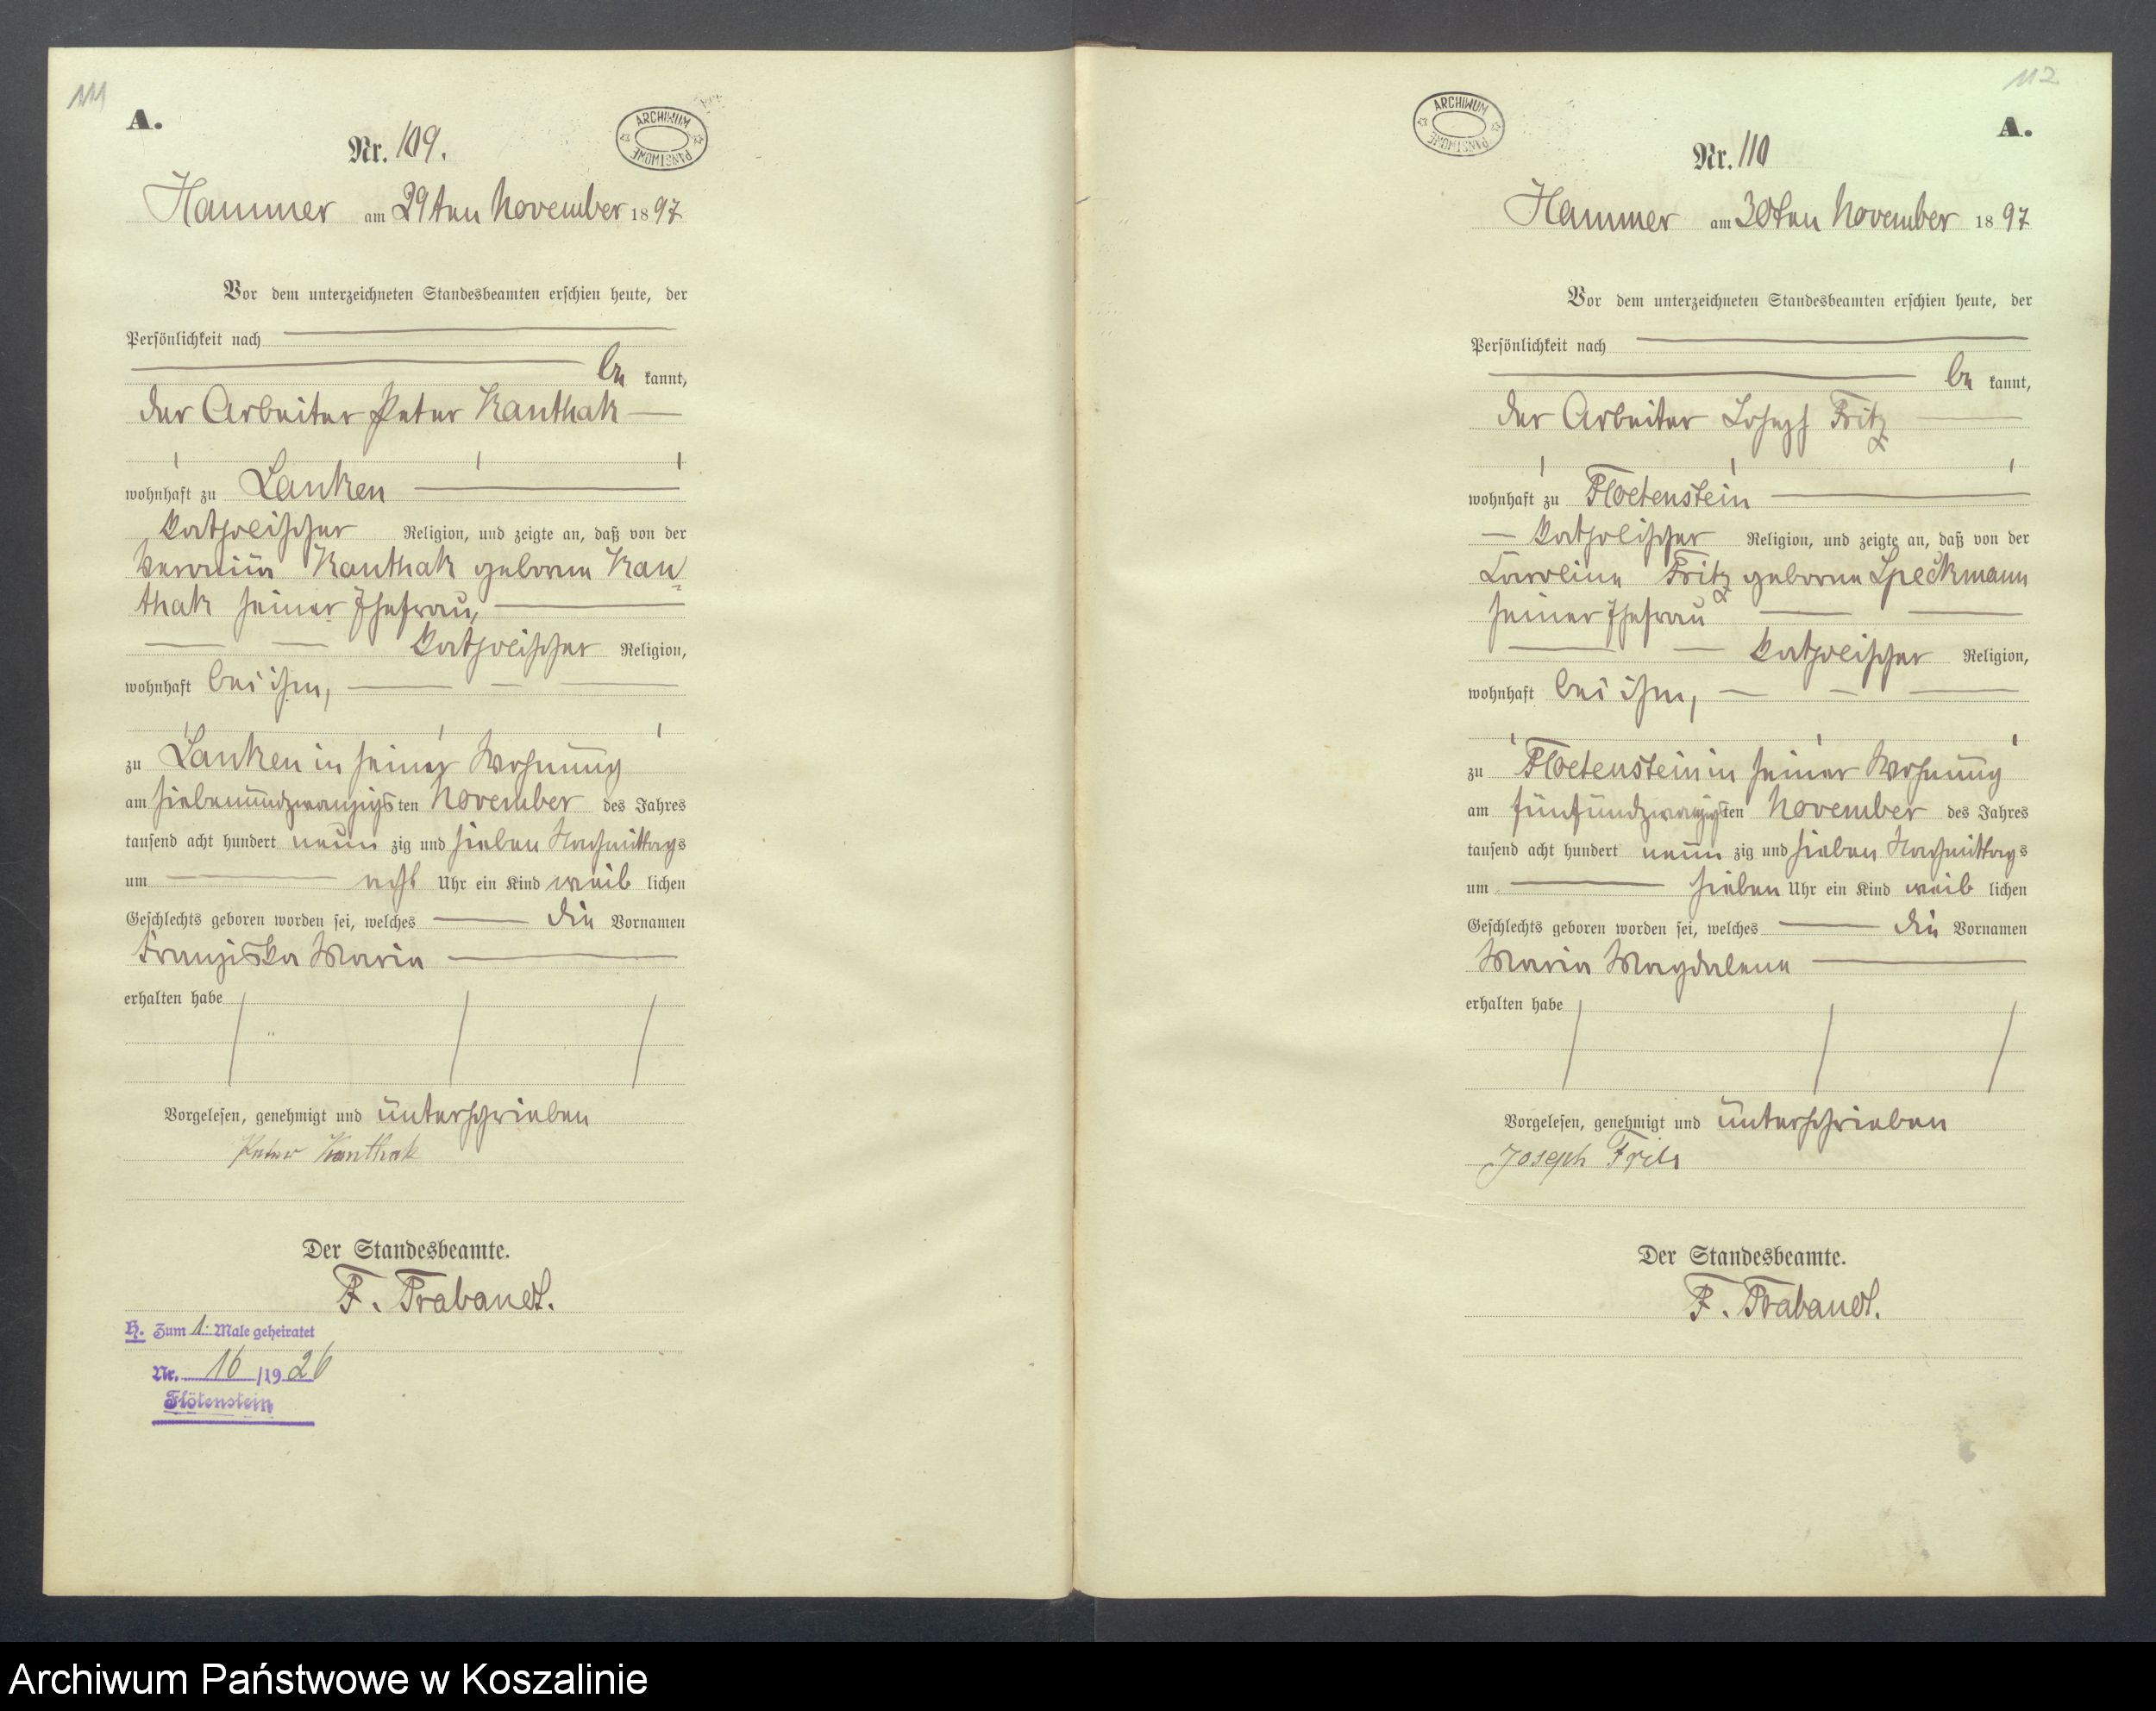 111
A.
ARCHIWUM PAŃSTWOWE
Nr. 109.
Hammer am 29ten November 1897
Vor dem unterzeichneten Standesbeamten erschien heute, der
Persönlichkeit nach
be kannt,
der Arbeiter Peter Kanthak
wohnhaft zu Lanken
katholischer Religion, und zeigte an, daß von der
Kanthak geborene Kan
thak seiner Ehefrau,
katholischer Religion,
wohnhaft bei ihm,
zu Lanken in seiner Wohnung
am siebenundzwanzigsten November des Jahres
tausend acht hundert neun zig und sieben Nachmittags
um acht Uhr ein Kind weib lichen
Geschlechts geboren worden sei, welches die Vornamen
Franziska Maria
erhalten habe
Vorgelesen, genehmigt und unterschrieben
Peter Kanthak
Der Standesbeamte.
F. Trabandt.
H. Zum 1. Male geheiratet
Nr. 16/1926
Flötenstein
112
ARCHIWUM PAŃSTWOWE
A.
Nr. 110
Hammer am 30ten November 1897
Vor dem unterzeichneten Standesbeamten erschien heute, der
Persönlichkeit nach
be kannt,
der Arbeiter Joseph Fritz
wohnhaft zu Floetenstein
katholischer Religion, und zeigte an, daß von der
Caroline Fritz geborene Speckmann
seiner Ehefrau
katholischer Religion,
wohnhaft bei ihm,
zu Floetenstein in seiner Wohnung
am fünfundzwanzigsten November des Jahres
tausend acht hundert neun zig und sieben Nachmittags
um sieben Uhr ein Kind weib lichen
Geschlechts geboren worden sei, welches die Vornamen
Maria Magdalene
erhalten habe
Vorgelesen, genehmigt und unterschrieben
Joseph Frits
Der Standesbeamte.
F. Trabandt.
Archiwum Państwowe w Koszalinie